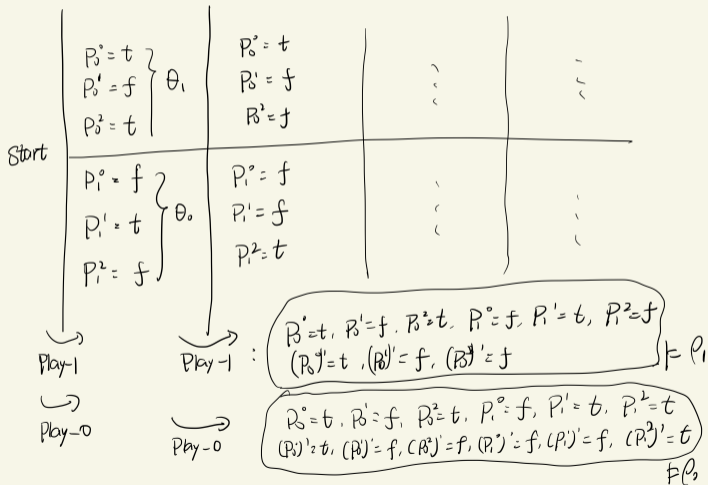 P₀⁰ = t
P₀¹ = f } θ₁
P₀² = t
P₀⁰ = t
P₀¹ = f
P₀² = f
Start
P₁⁰ = f
P₁¹ = t } θ₀
P₁² = f
P₁⁰ = f
P₁¹ = f
P₁² = t
Play-1
Play-1 :
P₀⁰=t, P₀¹=f, P₀²=t, P₁⁰=f, P₁¹=t, P₁²=f
(P₀⁰)'=t, (P₀¹)'=f, (P₀²)'=f
⊨ ρ₁
Play-0
Play-0
P₀⁰=t, P₀¹=f, P₀²=t, P₁⁰=f, P₁¹=t, P₁²=t
(P₀⁰)'=t, (P₀¹)'=f, (P₀²)'=f, (P₁⁰)'=f, (P₁¹)'=f, (P₁²)'=t
⊨ρ₂